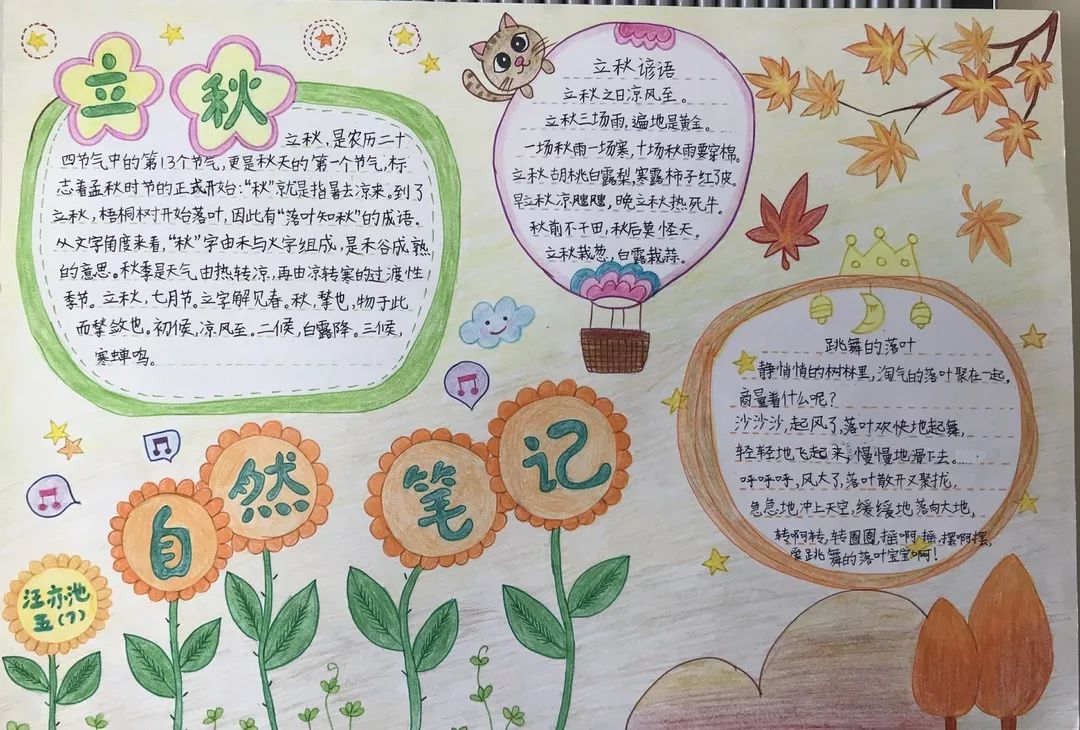 立秋
立秋，是农历二十
四节气中的第13个节气，更是秋天的第一个节气，标
志着孟秋时节的正式开始："秋"就是指暑去凉来。到了
立秋，梧桐树开始落叶，因此有"落叶知秋"的成语。
从文字角度来看，"秋"字由禾与火字组成，是禾谷成熟
的意思。秋季是天气由热转凉，再由凉转寒的过渡性
季节。立秋，七月节。立字解见春。秋，揫也，物于此
而揫敛也。初候，凉风至。二候，白露降。三候，
寒蝉鸣。
立秋谚语
立秋之日凉风至。
立秋三场雨，遍地是黄金。
一场秋雨一场寒，十场秋雨要穿棉。
立秋胡桃白露梨，寒露柿子红了皮。
早立秋凉飕飕，晚立秋热死牛。
秋前不干田，秋后莫怪天。
立秋栽葱，白露栽蒜。
跳舞的落叶
静悄悄的树林里，淘气的落叶聚在一起，
商量着什么呢？
沙沙沙，起风了，落叶欢快地起舞，
轻轻地飞起来，慢慢地滑下去。
呼呼呼，风大了，落叶散开又聚拢，
急急地冲上天空，缓缓地落向大地，
转啊转，转圈圈，摇啊摇，摆啊摆，
爱跳舞的落叶宝宝啊！
自然笔记
汪亦池
五（7）